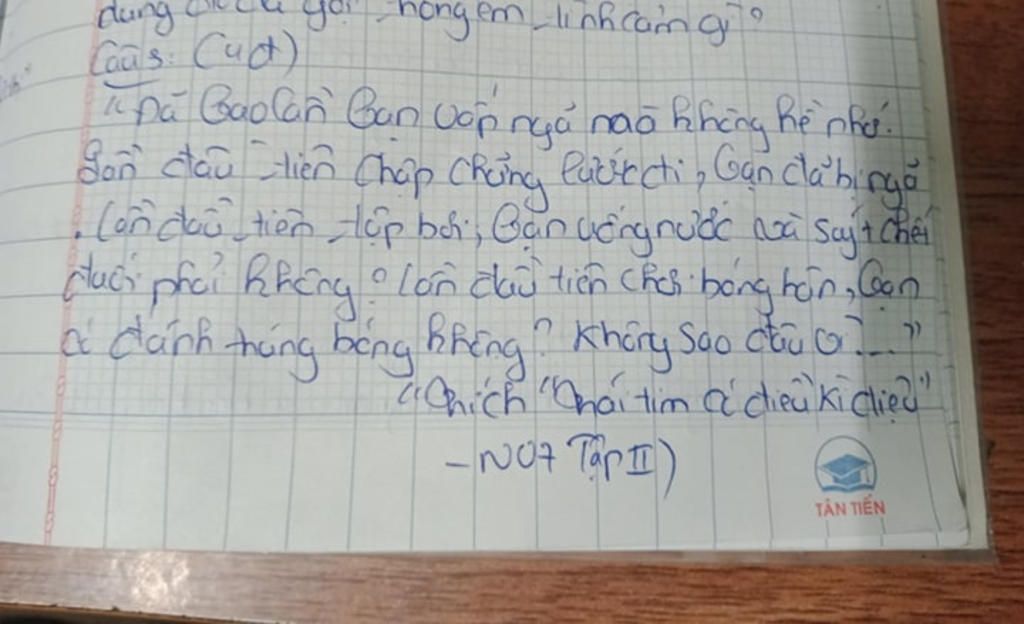 dung
Câu 3: (4đ)
"Đã bao lần bạn vấp ngã mà không hề nhớ.
Lần đầu tiên chập chững bước đi, bạn đã bị ngã
. Lần đầu tiên tập bơi, bạn uống nước và suýt chết
đuối phải không? Lần đầu tiên chơi bóng bàn, bạn
có đánh trúng bóng không? Không sao đâu vì...."
(Trích "Trái tim có điều kì diệu"
- NV7 Tập II)
TÂN TIẾN